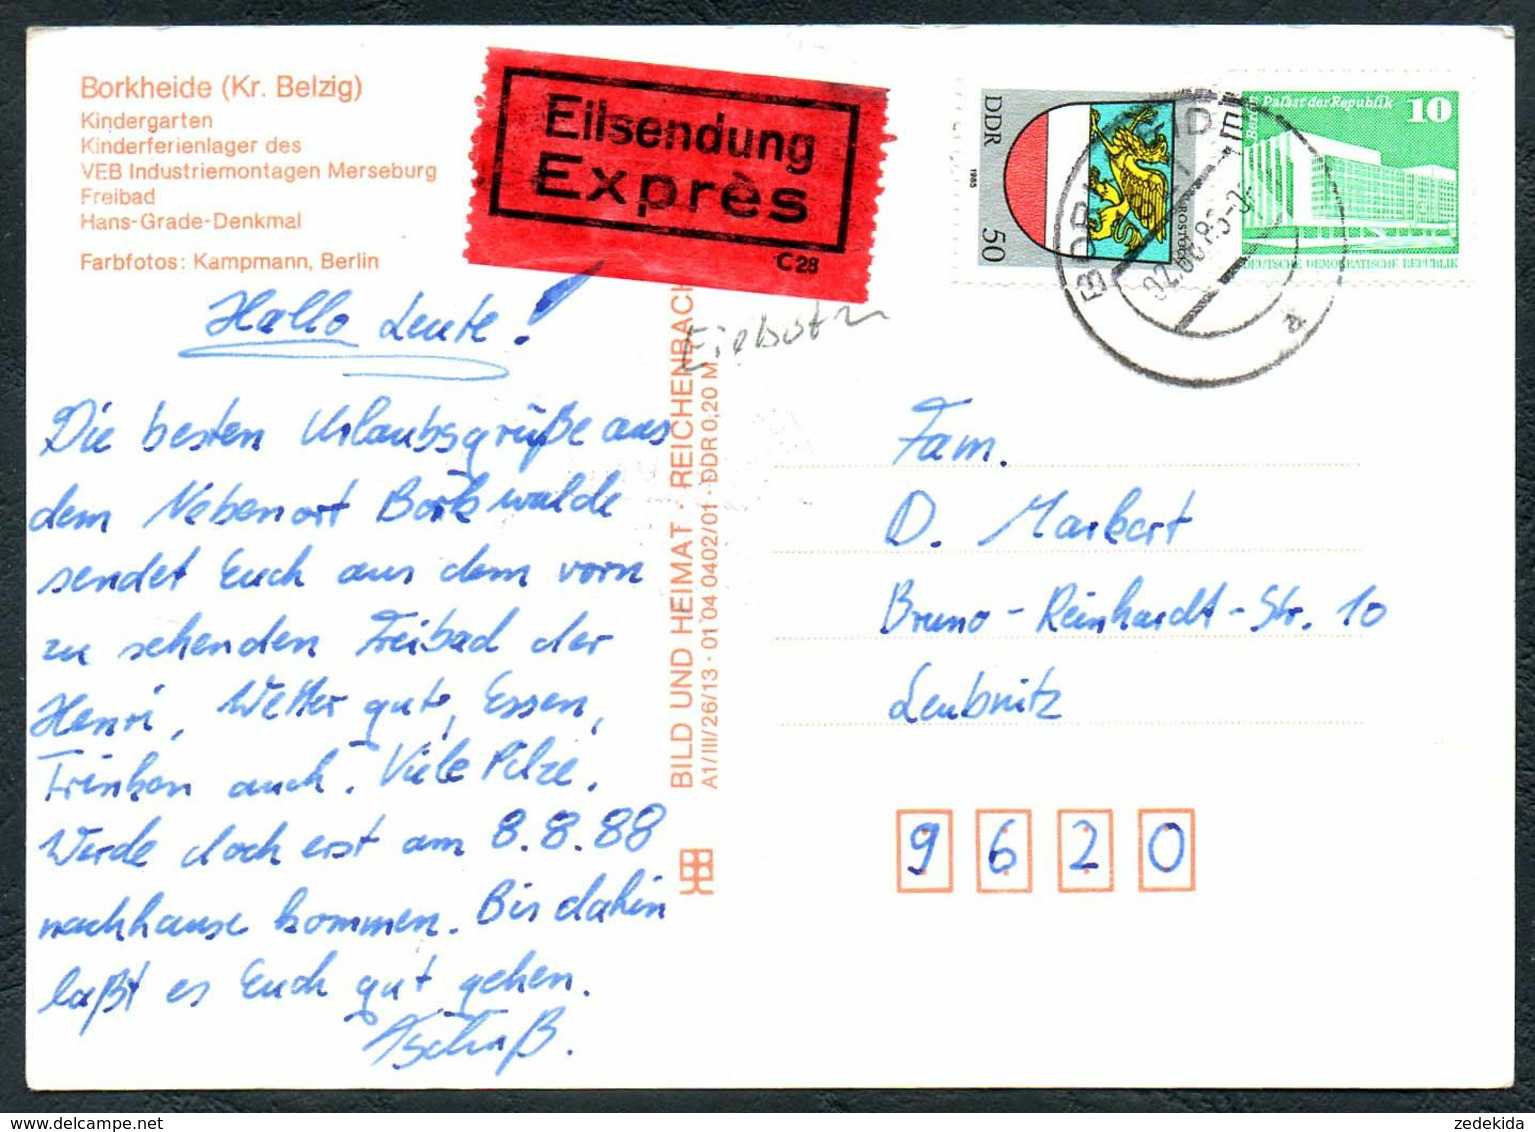 Borkheide (Kr. Belzig)
Kindergarten
Kinderferienlager des
VEB Industriemontagen Merseburg
Freibad
Hans-Grade-Denkmal
Farbfotos: Kampmann, Berlin
Eilsendung
Exprès
C 28
DDR
1985
50
ROSTOCK
Palast der Republik
Berlin
10
DEUTSCHE DEMOKRATISCHE REPUBLIK
BORKHEIDE
02.08.88
Hallo Leute!
Die besten Urlaubsgrüße aus
dem Nebenort Borkwalde
sendet Euch aus dem vorn
zu sehenden Freibad der
Henri, Wetter gut, Essen,
Trinken auch. Viele Pilze.
Werde doch erst am 8.8.88
nachhause kommen. Bis dahin
laßt es Euch gut gehen.
Tschüß.
BILD UND HEIMAT · REICHENBACH
A1/III/26/13 · 01 04 0402/01 · DDR 0,20 M
Fam.
D. Markert
Bruno-Reinhardt-Str. 10
Leubnitz
9620
zedekida